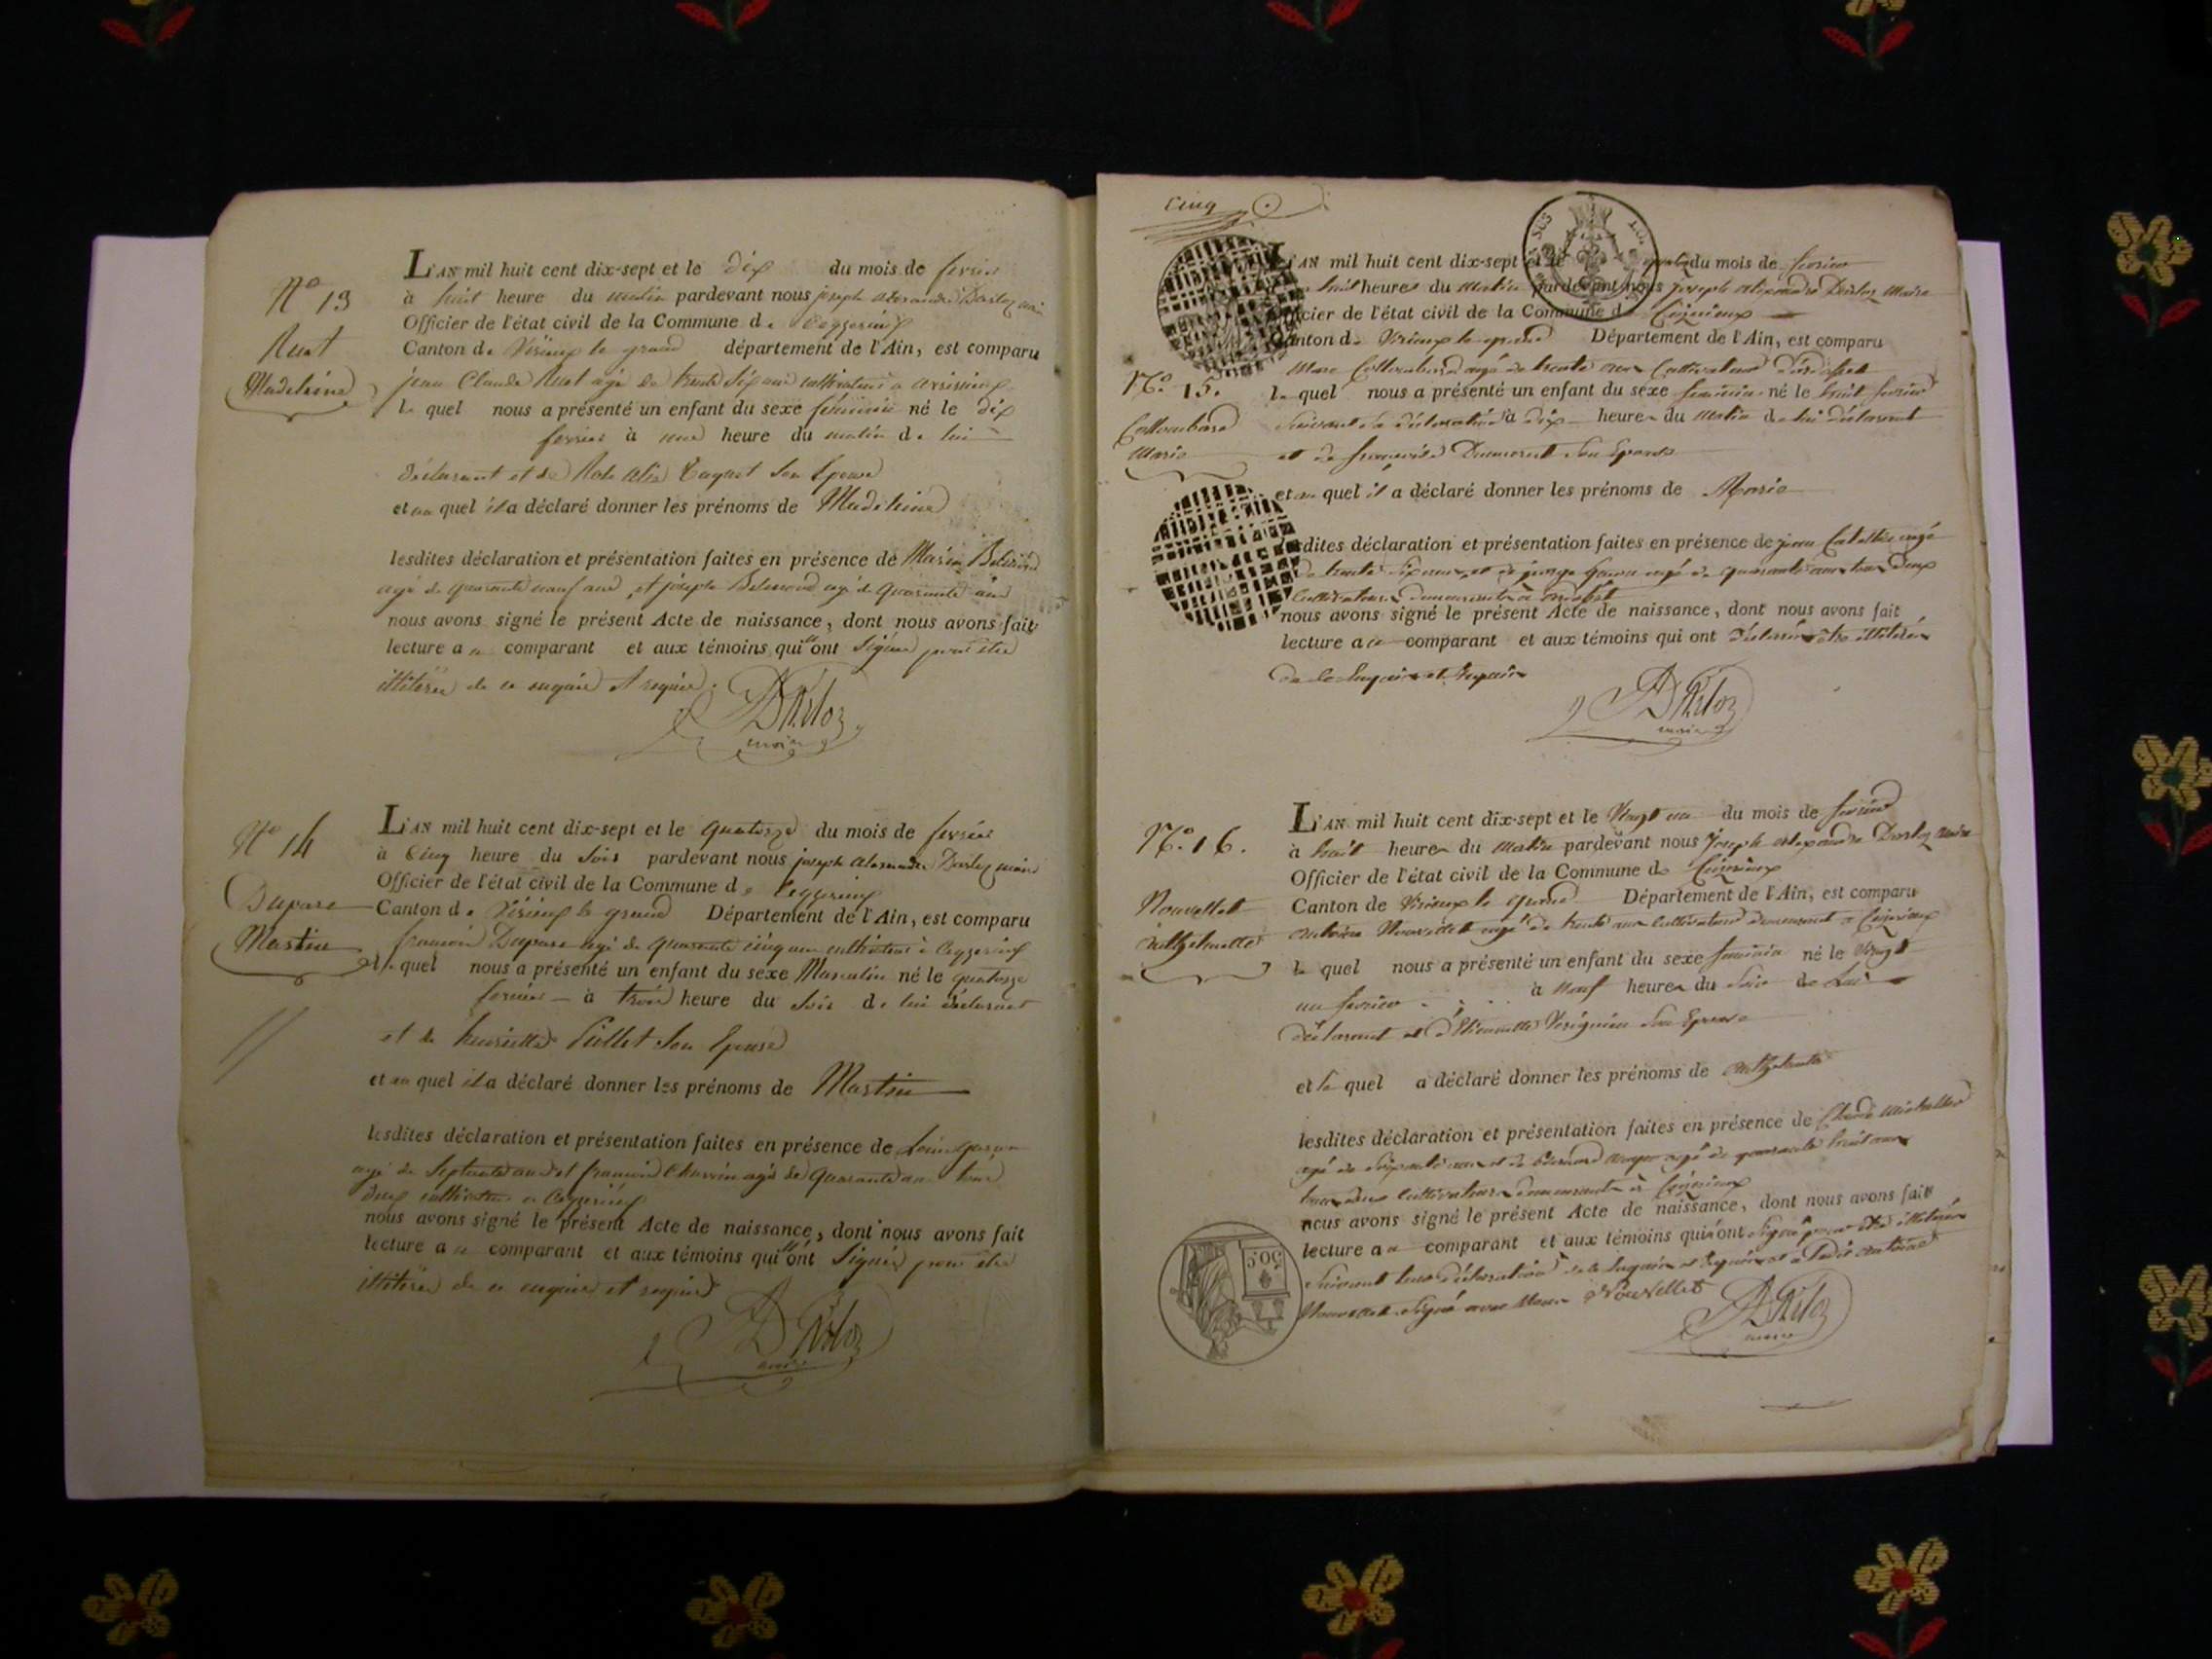 N° 13
Ruat
Madeleine
L'AN mil huit cent dix-sept et le dix du mois de fevrier
à huit heure du matin pardevant nous joseph alexandre maire
Officier de l'état civil de la Commune de Ceyzerieux
Canton de Virieux le grand département de l'Ain, est comparu
jean Claude Ruat agé de trente six ans cultivateur a
le quel nous a présenté un enfant du sexe féminin né le dix
fevrier à une heure du matin de lui
déclarant et de son Epouse
et au quel il a déclaré donner les prénoms de Madeleine
lesdites déclaration et présentation faites en présence de
agé de quarante neuf ans, et joseph agé de quarante ans
nous avons signé le présent Acte de naissance, dont nous avons fait
lecture a ce comparant et aux témoins qui n'ont signé pour etre
illitéré de ce enquis et requis.
maire
N° 14
Duparc
Martin
L'AN mil huit cent dix-sept et le quatorze du mois de fevrier
à cinq heure du soir pardevant nous joseph alexandre maire
Officier de l'état civil de la Commune de Ceyzerieux
Canton de Virieux le grand Département de l'Ain, est comparu
francois Duparc agé de quarante cinq ans cultivateur à Ceyzerieux
le quel nous a présenté un enfant du sexe Masculin né le quatorze
fevrier à trois heure du soir de lui déclarant
et de henriette Pillet son Epouse
et au quel il a déclaré donner les prénoms de Martin
lesdites déclaration et présentation faites en présence de
agé de septante ans et francois Charvin agé de quarante ans tous
deux cultivateur a Ceyzerieux
nous avons signé le présent Acte de naissance, dont nous avons fait
lecture a ce comparant et aux témoins qui n'ont signé pour etre
illitéré de ce enquis et requis
maire
Cinq
N°. 15.
Collombard
Marie
L'AN mil huit cent dix-sept et le du mois de fevrier
huit heures du matin pardevant nous joseph alexandre maire
Officier de l'état civil de la Commune de Ceizerieux
Canton de Virieux le grand Département de l'Ain, est comparu
Marc Collombard agé de trente ans Cultivateur
le quel nous a présenté un enfant du sexe feminin né le huit fevrier
suivant sa déclaration à dix heures du matin de lui déclarant
et de françoise Dumorent son Epouse
et au quel il a déclaré donner les prénoms de Marie
lesdites déclaration et présentation faites en présence de jean agé
de trente six ans et de agé de quarante ans tous deux
Cultivateurs demeurants a
nous avons signé le présent Acte de naissance, dont nous avons fait
lecture a ce comparant et aux témoins qui ont déclaré être illitérés
de ce enquis et requis
maire
N°. 16.
Nouvellet
Anthelmette
L'AN mil huit cent dix-sept et le vingt un du mois de fevrier
à huit heures du matin pardevant nous Joseph alexandre maire
Officier de l'état civil de la Commune de Ceizerieux
Canton de Virieux le grand Département de l'Ain, est comparu
antoine Nouvellet agé de trente ans cultivateur demeurant a Ceizerieux
le quel nous a présenté un enfant du sexe feminin né le vingt
un fevrier à neuf heures du soir de lui
déclarant et d'Etiennette son Epouse
et le quel a déclaré donner les prénoms de Anthelmette
lesdites déclaration et présentation faites en présence de Claude
agé de soixante ans et de agé de quarante huit ans
tous deux cultivateurs demeurants à Ceizerieux
nous avons signé le présent Acte de naissance, dont nous avons fait
lecture a ce comparant et aux témoins qui n'ont signé pour être illitérés
suivant leur déclaration de ce enquis et requis et le dit antoine
Nouvellet signé avec Nous Nouvellet
maire
50C